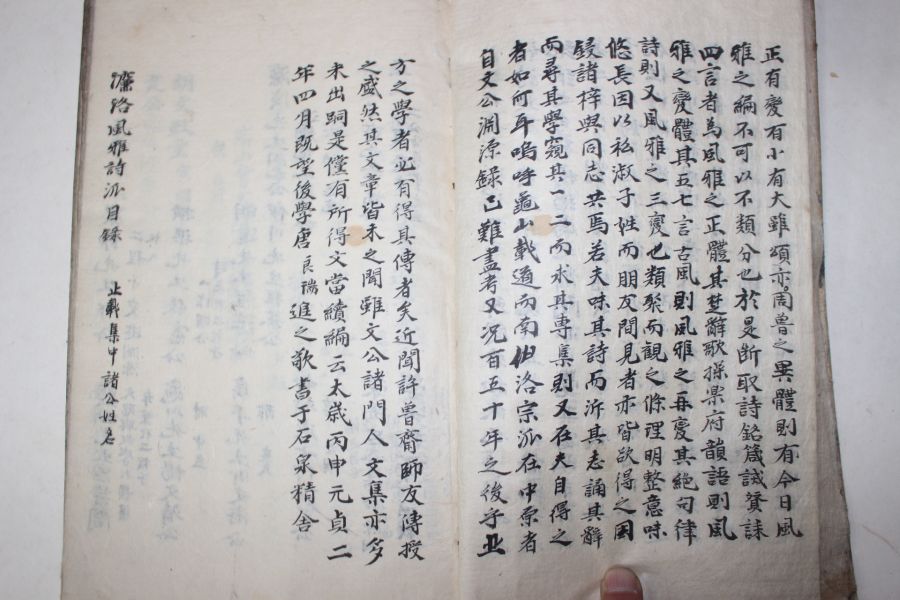 正有變有小有大雖頌亦周魯之異體則有今日風
雅之編不可以不類分也於是斷取詩銘箴誡贊誄
四言者為風雅之正體其楚辭歌操樂府韻語則風
雅之變體其五七言古風則風雅之再變其絶句律
詩則又風雅之三變也類聚而觀之條理明整意味
悠長因以私淑子姪而朋友間見者亦皆欲得之因
鋟諸梓與同志共焉若夫味其詩而泝其志誦其辭
而尋其學窺其一二而求其專集則又在夫自得之
者如何耳嗚呼龜山載道而南伯洛宗派在中原者
自文公淵源録已難盡考又況百五十年之後乎北
方之學者必有得其傳者矣近聞許魯齋師友傳授
之盛然其文章皆未之聞雖文公諸門人文集亦多
未出詞是僅有所得文當續編云太歳丙申元貞二
年四月既望後學唐良瑞進之敬書于石泉精舍
濂洛風雅詩派目録 止載集中諸公姓名